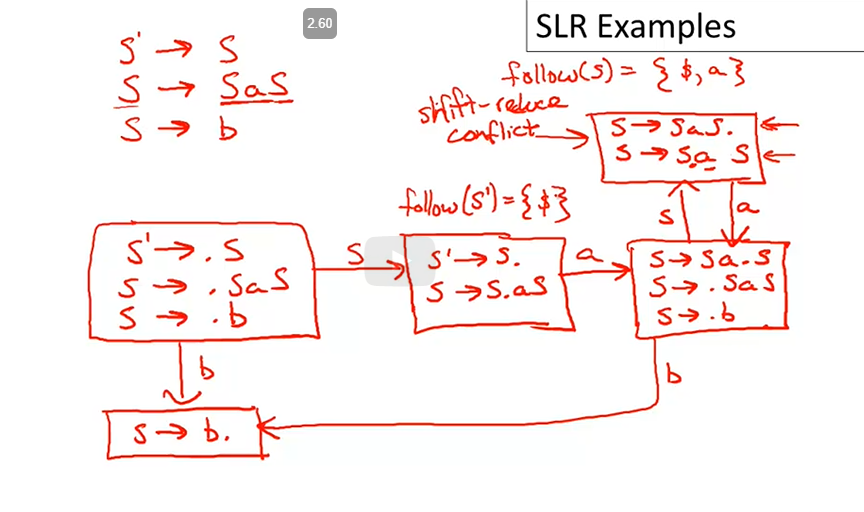 2.60
SLR Examples
S' → S
S → SaS
S → b
follow(S) = { $, a }
shift-reduce
conflict
S → SaS.
S → S.a S
follow(S') = { $ }
S
a
S' → . S
S → . SaS
S → . b
S
S' → S.
S → S.aS
a
S → Sa.S
S → . SaS
S → . b
b
b
S → b.